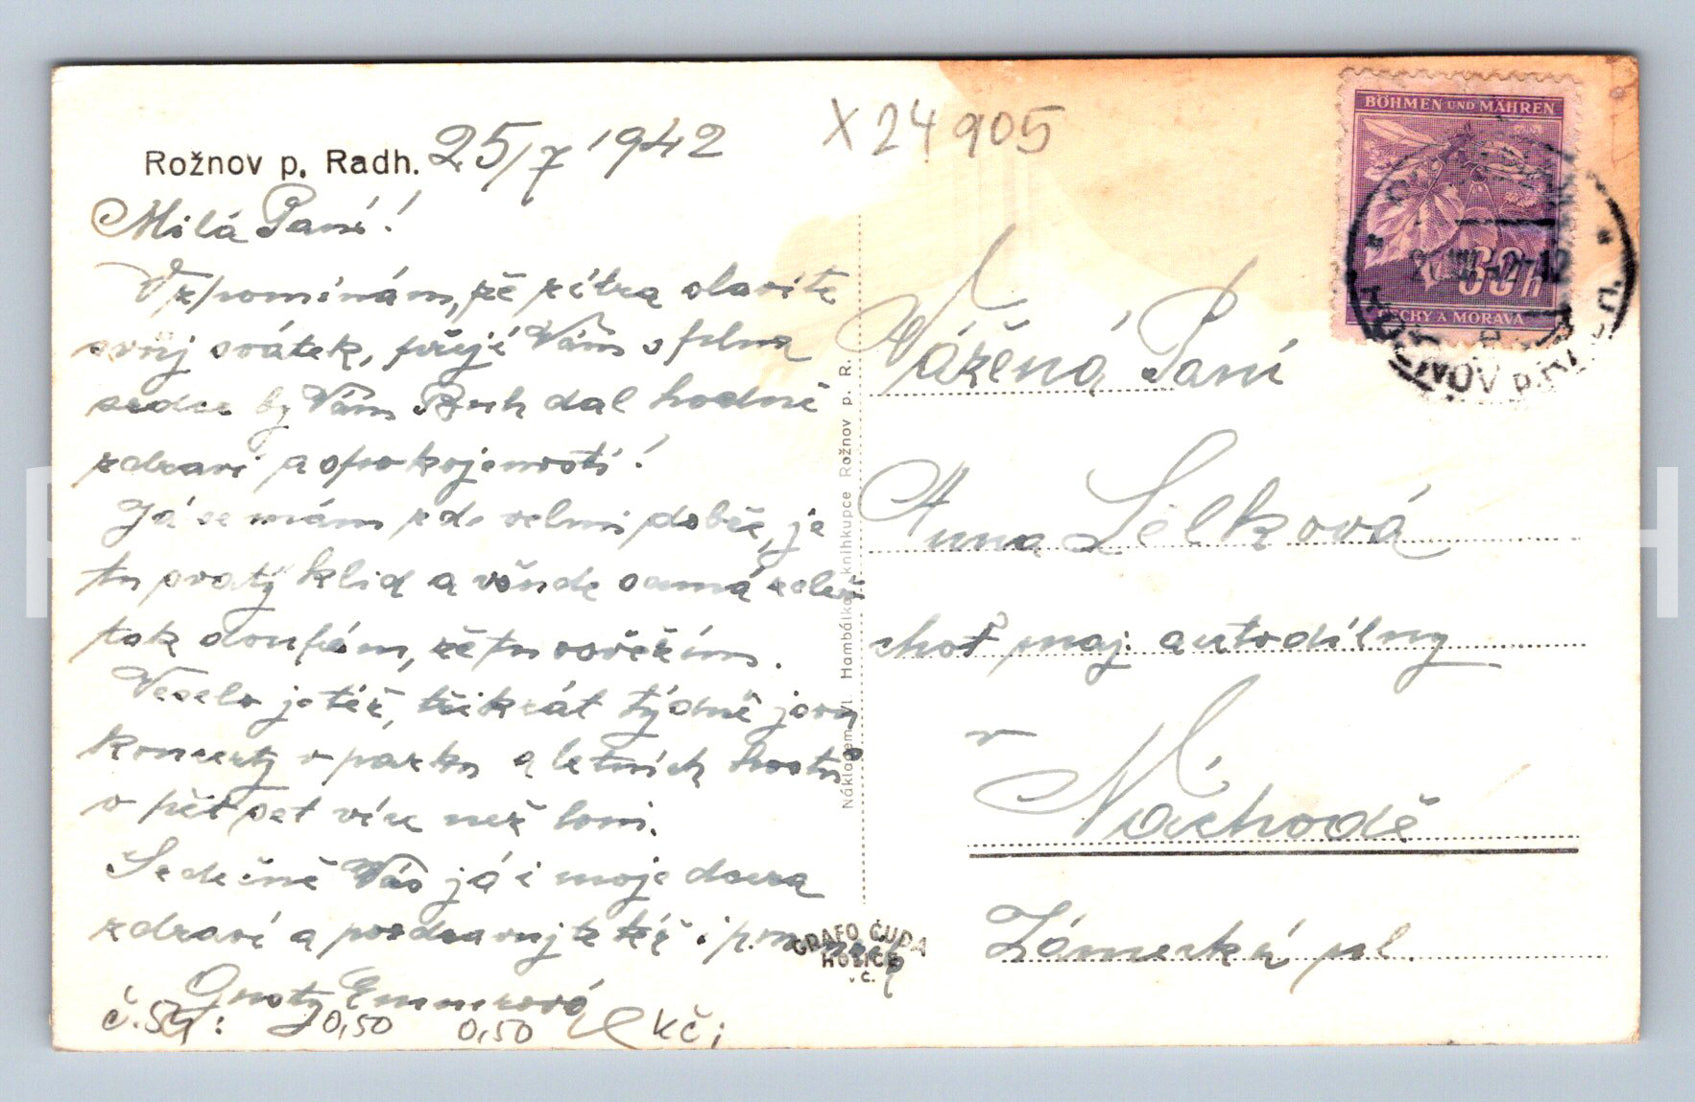 Rožnov p. Radh. 25/7 1942
X 24 905
Milá Paní!
Vzpomínám, že zítra slavíte
svůj svátek, přeji Vám s plna
srdce by Vám Bůh dal hodně
zdraví a spokojenosti!
Já se mám zde velmi dobře, je
tu svatý klid a všude samá zeleň
tak doufám, že tu osvěžím.
Veselo je též, třikrát týdně jsou
koncerty v parku a letních hostů
o pět set více než loni.
Srdečně Vás já i moje dcera
zdraví a pozdravujte též i p.
č. sg: 0,50 0,50 kč;
Nákladem Vl. Hambálka knihkupce Rožnov p. R.
GRAFO ČUDA
HOLICE
v č.
BÖHMEN UND MÄHREN
60h
ČECHY A MORAVA
Vážená Paní
Anna Sélková
choť maj. autodílny
v
Náchodě
Zámecká pl.